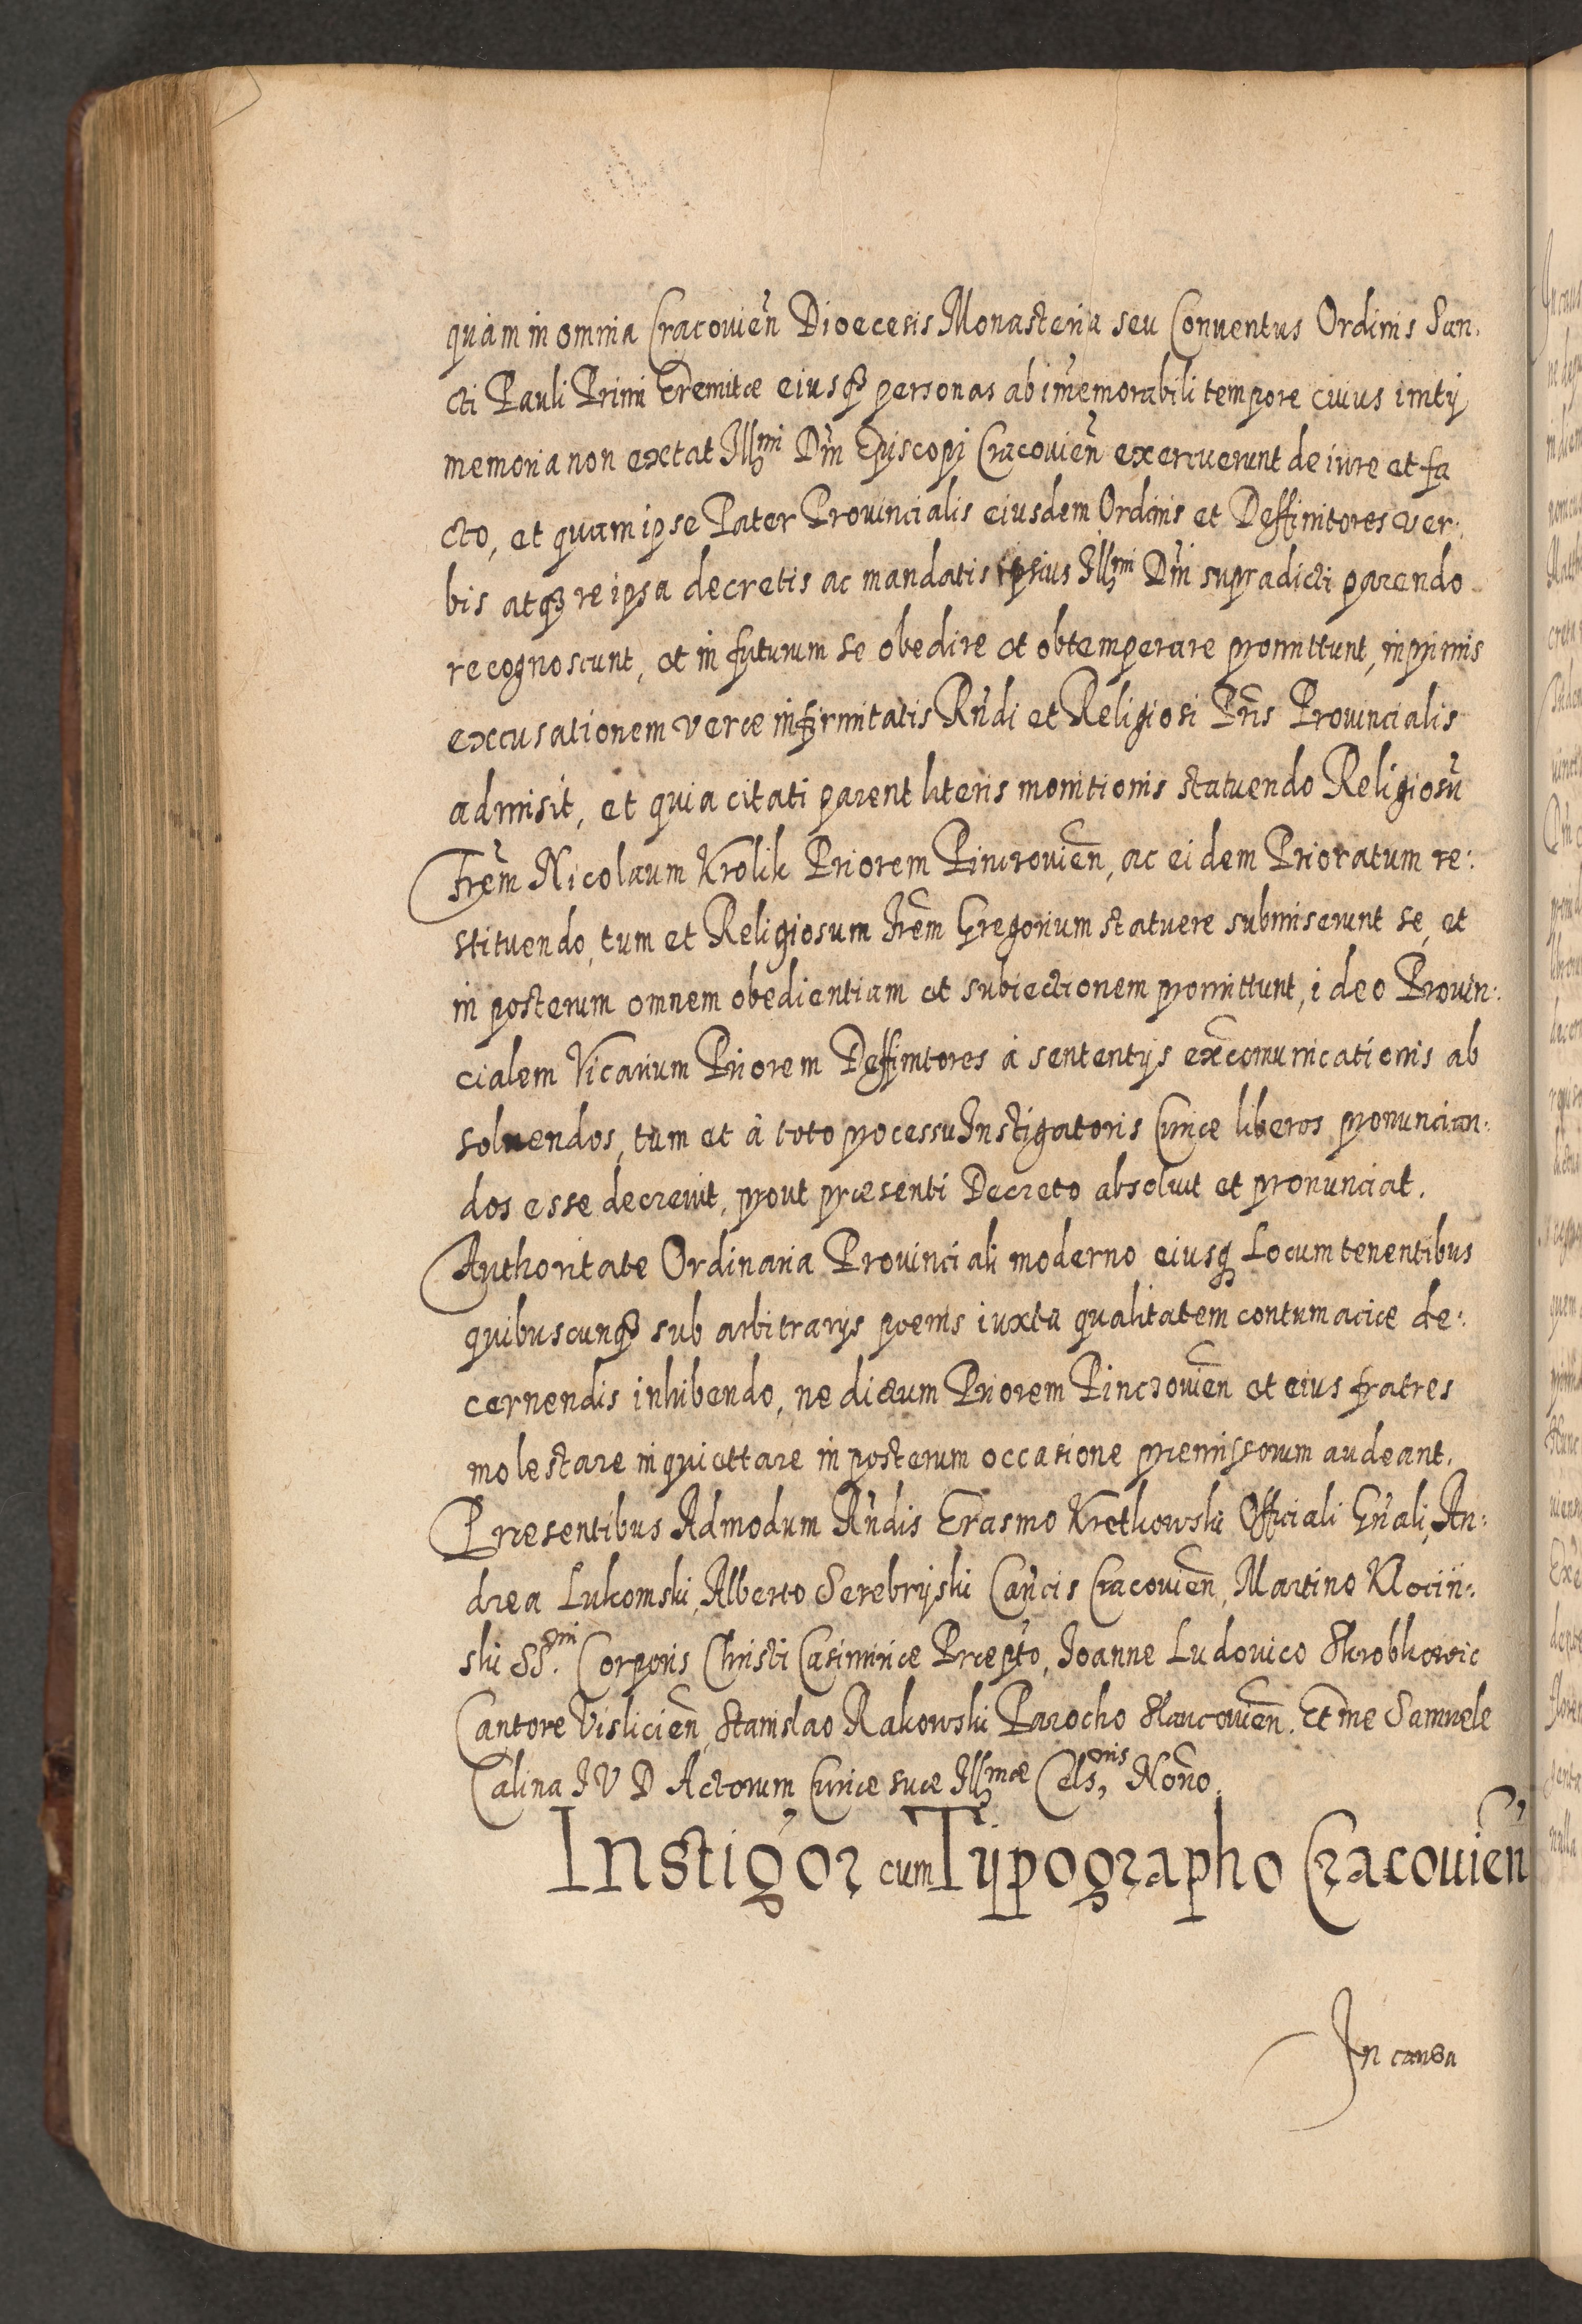 quam in omnia Cracouien̄ Dioecesis Monasteria seu Conuentus Ordinis San:
cti Pauli Primi Eremitæ eiusqȝ personas ab im̄emorabili tempore cuius initij
memoria non extat Illmi Dn̄i Episcopi Cracouien̄ exercuerunt de iure et fa
cto, et quam ipse Pater Prouincialis eiusdem Ordinis et Deffinitores ver:
bis atqȝ reipsa decretis ac mandatis ipsius Illmi Dn̄i supradicti parendo
recognoscunt, et in futurum se obedire et obtemperare promittunt, inprimis
excusationem veræ infirmitatis Rn̄di et Religiosi Pr̄is Prouincialis
admisit, et quia citati parent literis monitionis statuendo Religiosū
Frēm Nicolaum Krolik Priorem Pinczouien̄, ac eidem Prioratum re:
stituendo, tum et Religiosum Frēm Gregorium statuere submiserunt se, et
in posterum omnem obedientiam et subiectionem promittunt, ideo Prouin:
cialem Vicarium Priorem Deffinitores à sententijs excom̄unicationis ab
soluendos, tum et à toto processu Instigatoris Curiæ liberos pronuncian:
dos esse decreuit, prout præsenti Decreto absoluit et pronunciat.
Authoritate Ordinaria Prouinciali moderno eiusqȝ Locum tenentibus
quibuscunqȝ sub arbitrarijs poenis iuxta qualitatem contumaciæ de:
cernendis inhibendo, ne dictum Priorem Pinczouien̄ et eius fratres
molestare inquiettare in posterum occasione præmissorum audeant.
Præsentibus Admodum Rn̄dis Erasmo Kretkowski Officiali Gn̄ali, An:
drea Lukomski, Alberto Serebryski Can̄cis Cracouien̄, Martino Klocin:
ski SSmi. Corporis Christi Casimiriæ Præpto, Ioanne Ludouico Skrobkowic
Cantore Vislicien̄, Stanislao Rakowski Parocho Slancouien̄. Et me Samuele
Calina I V D Actorum Curiæ suæ Illmæ Cels,nis Norio.
Instigor cum Tÿpographo Cracouien̄
In causa